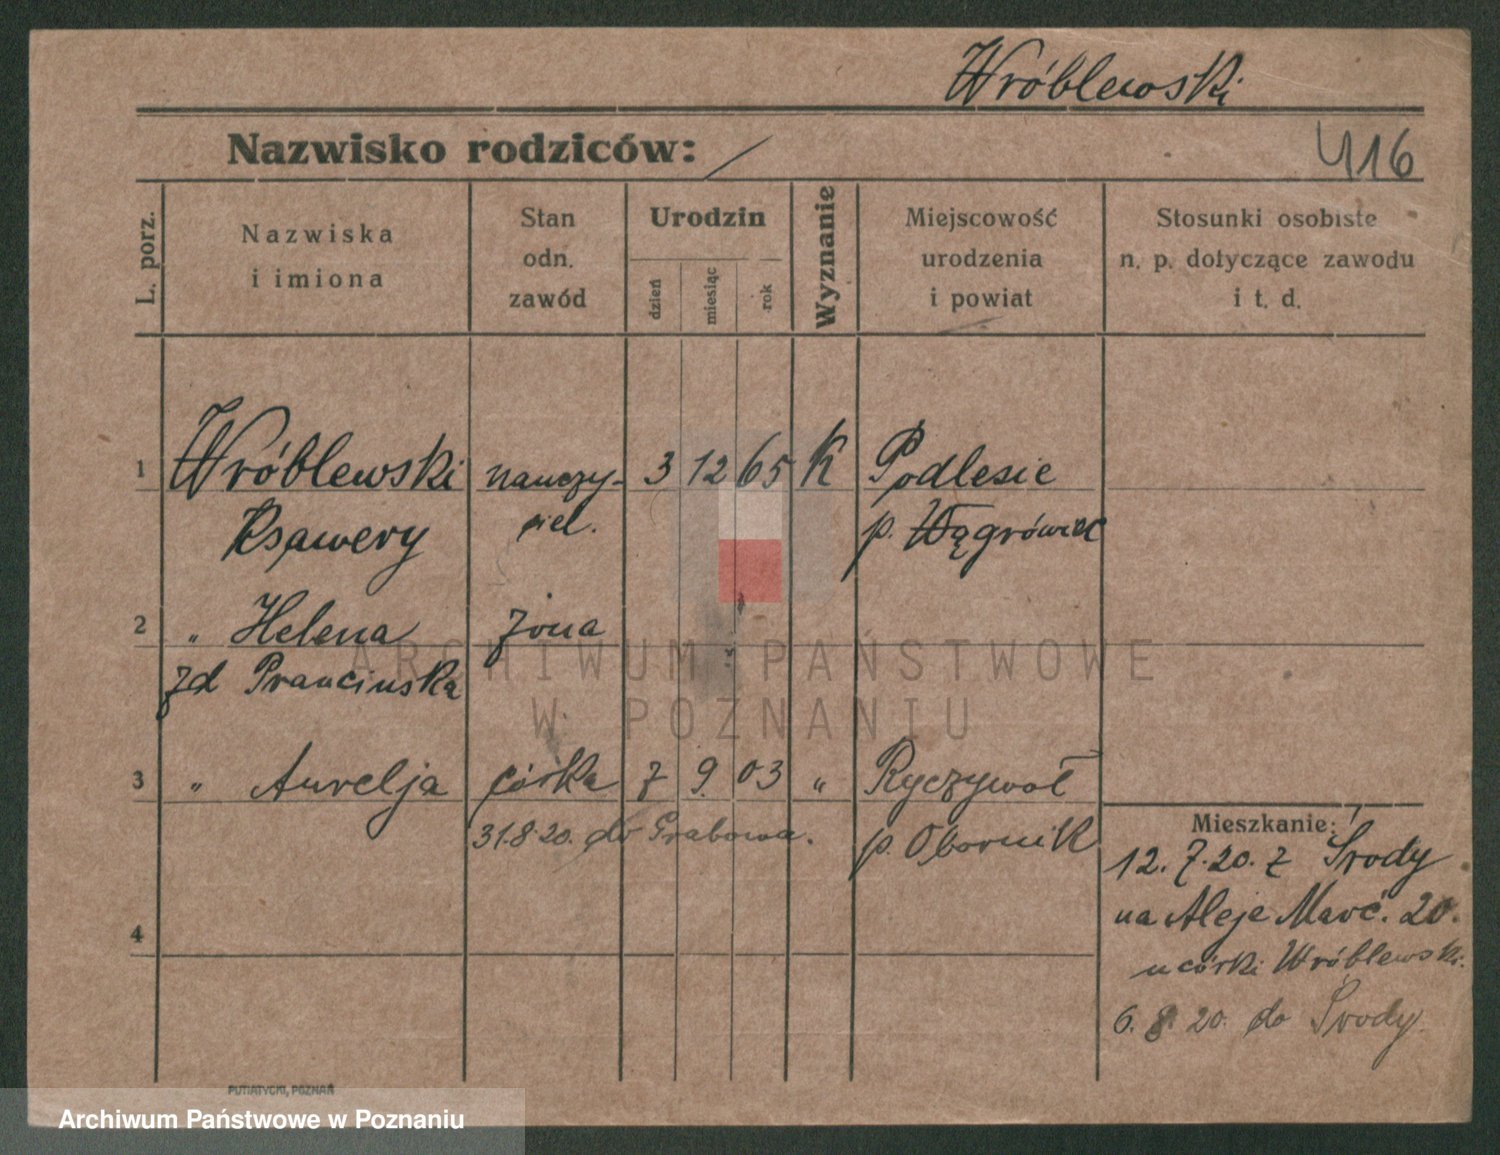 Wróblewski
Nazwisko rodziców: /
416
L. porz.
Nazwiska
i imiona
Stan
odn.
zawód
Urodzin
dzień
miesiąc
rok
Wyznanie
Miejscowość
urodzenia
i powiat
Stosunki osobiste
n. p. dotyczące zawodu
i t. d.
1 Wróblewski nauczy- 3 12 65 K Podlesie
Ksawery ciel. p. Wągrówiec
2 „ Helena żona
zd Franciuska
3 „ Aurelja córka 7 9 03 „ Ryczywół
31.8.20. do Grabowa. p. Obornik
4
Mieszkanie:
12. 7. 20. z Środy
na Aleje Marć. 20.
u córki Wróblewski.
6. 8. 20. do Środy
PUTIATYCKI, POZNAŃ
ARCHIWUM PAŃSTWOWE
W POZNANIU
Archiwum Państwowe w Poznaniu